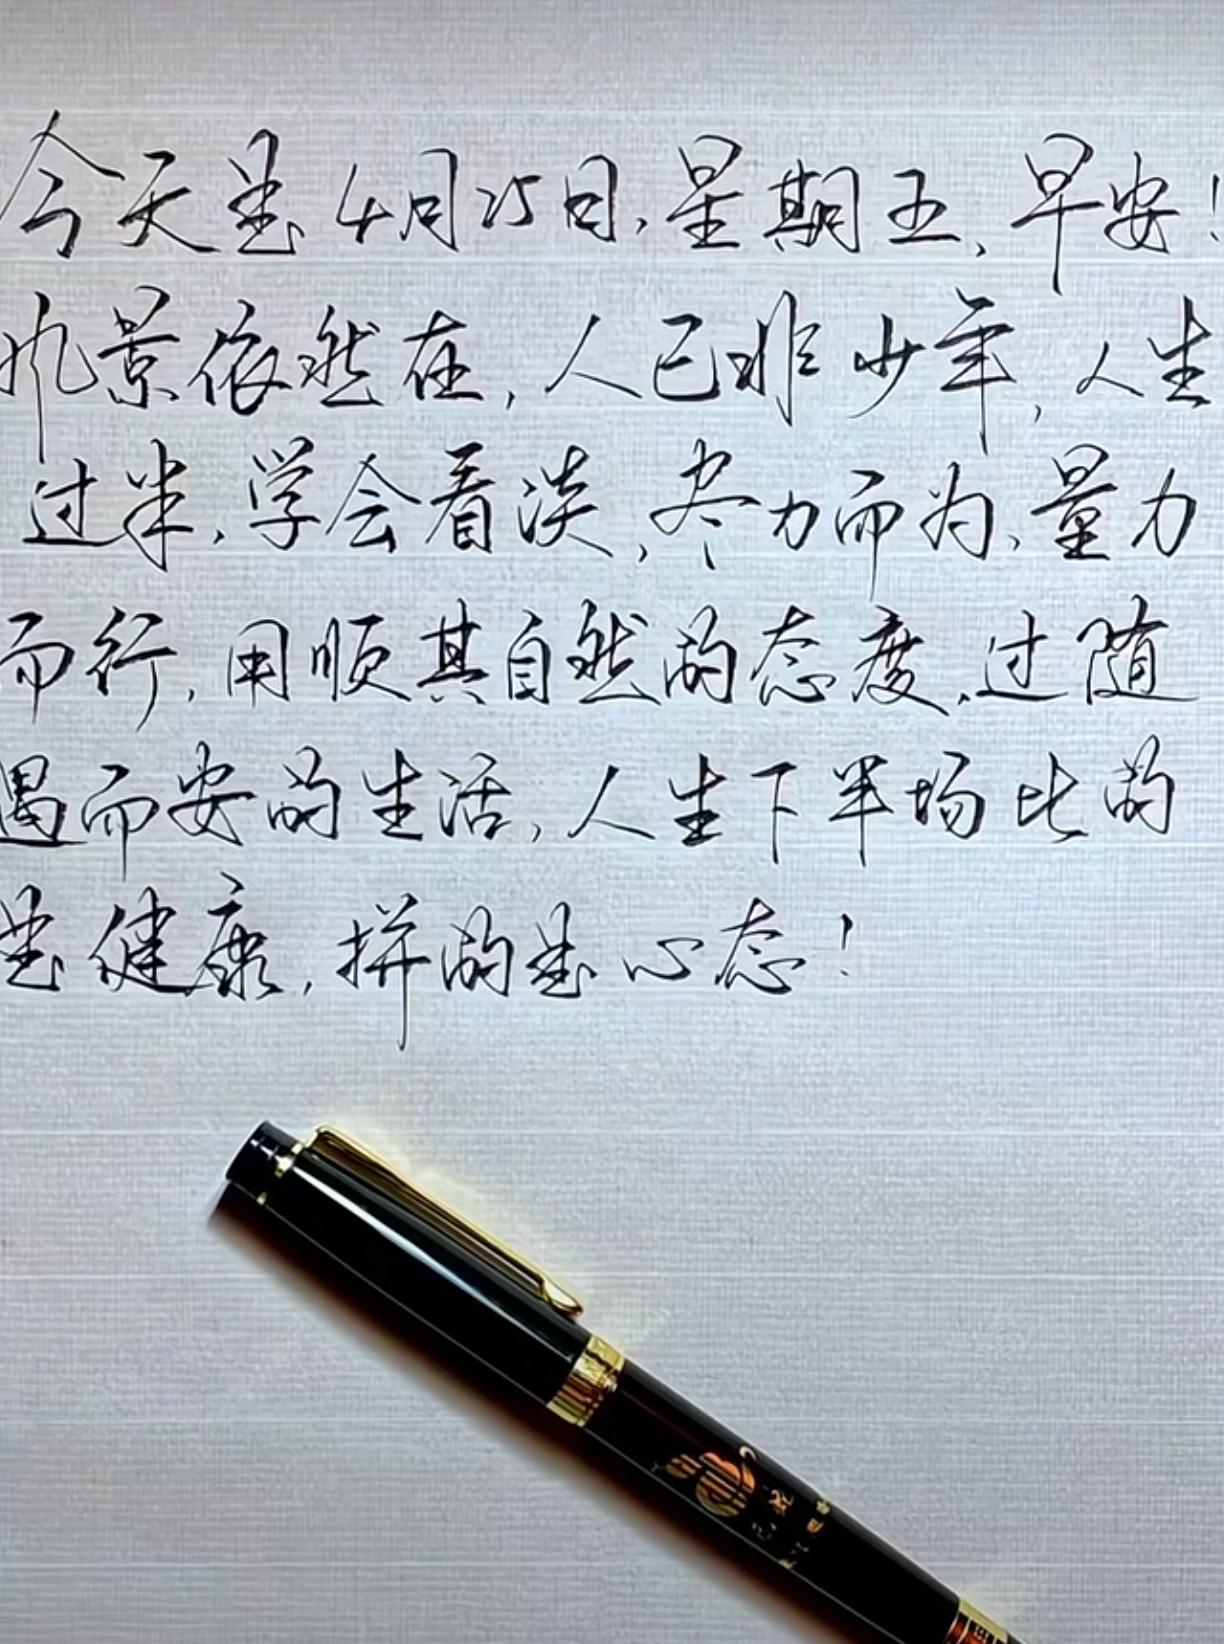 今天是4月25日,星期五,早安!
风景依然在,人已非少年,人生
过半,学会看淡,尽力而为,量力
而行,用顺其自然的态度,过随
遇而安的生活,人生下半场比的
是健康,拼的是心态!